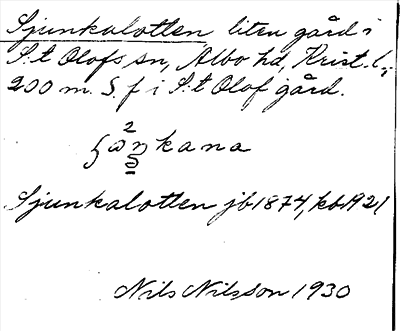 Sjunkalotten liten gård i
S:t Olofs sn, Albo hd, Krist. l,
200 m. S. f i S:t Olof gård.
kana
Sjunkalotten jb 1874, kb 1921
Nils Nilsson 1930